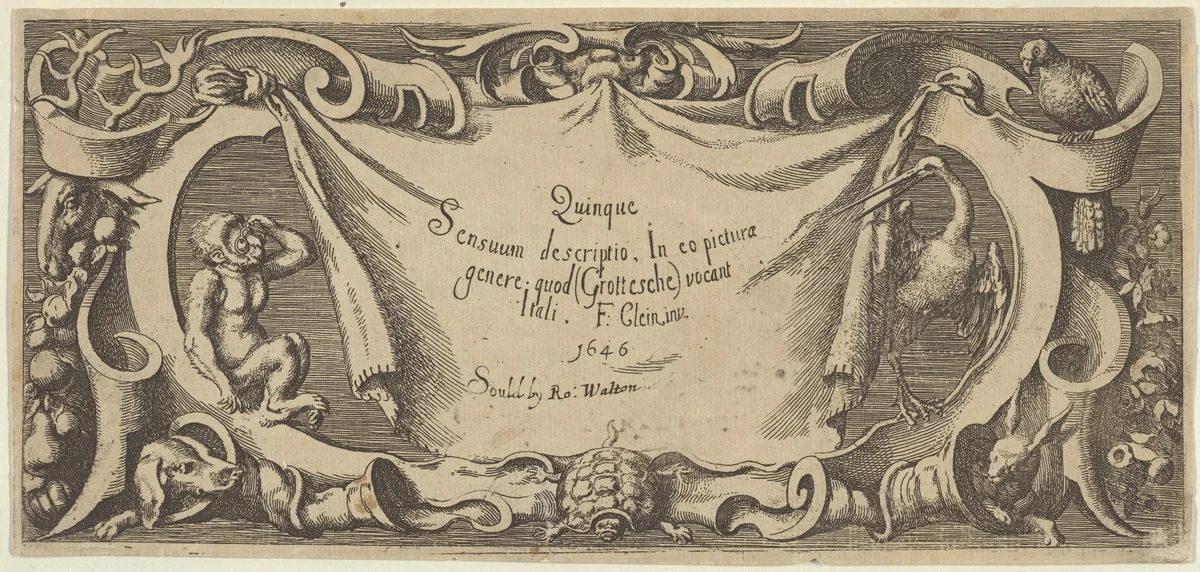 Quinque
Sensuum descriptio, In eo picturæ
genere, quod (Grottesche) vocant
Itali. F: Clein inv.
1646
Sould by Ro: Walton